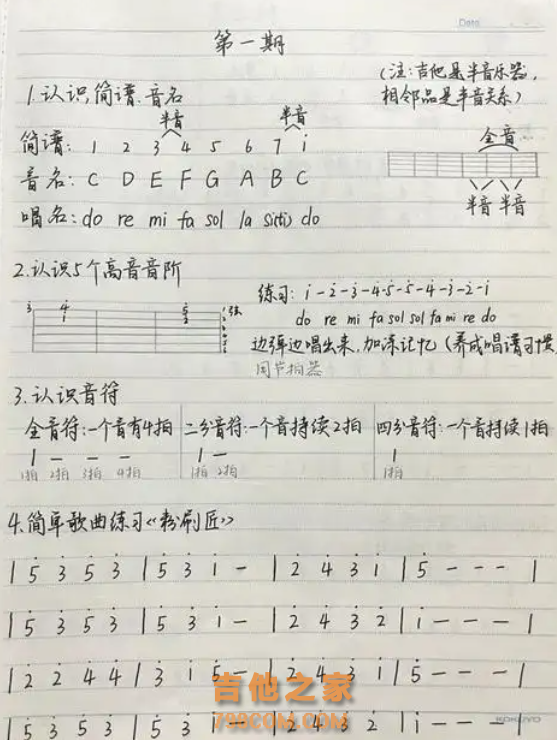 Date
第一期
(注:吉他是半音乐器,
相邻品是半音关系)
1.认识简谱、音名
半音 半音
简谱: 1 2 3 4 5 6 7 i
音名: C D E F G A B C
唱名: do re mi fa sol la si(ti) do
全音
半音 半音
2.认识5个高音音阶
3 4 1 5 2 1弦
练习: i - 2̇ - 3̇ - 4̇ - 5̇ - 5̇ - 4̇ - 3̇ - 2̇ - i
do re mi fa sol sol fa mi re do
边弹边唱出来,加深记忆(养成唱谱习惯
用节拍器
3.认识音符
全音符:一个音有4拍 二分音符:一个音持续2拍 四分音符:一个音持续1拍
1 - - - 1 - 1
1拍 2拍 3拍 4拍 1拍 2拍 1拍
4.简单歌曲练习《粉刷匠》
| 5̇ 3̇ 5̇ 3̇ | 5̇ 3̇ i - | 2̇ 4̇ 3̇ i | 5̇ - - - |
| 5̇ 3̇ 5̇ 3̇ | 5̇ 3̇ i - | 2̇ 4̇ 3̇ 2̇ | i - - - |
| 2̇ 2̇ 4̇ 4̇ | 3̇ i 5̇ - | 2̇ 4̇ 3̇ i | 5̇ - - - |
| 5̇ 3̇ 5̇ 3̇ | 5̇ 3̇ i - | 2̇ 4̇ 3̇ 2̇ | i - - - |
吉他之家
798COM.COM
KOKUYO